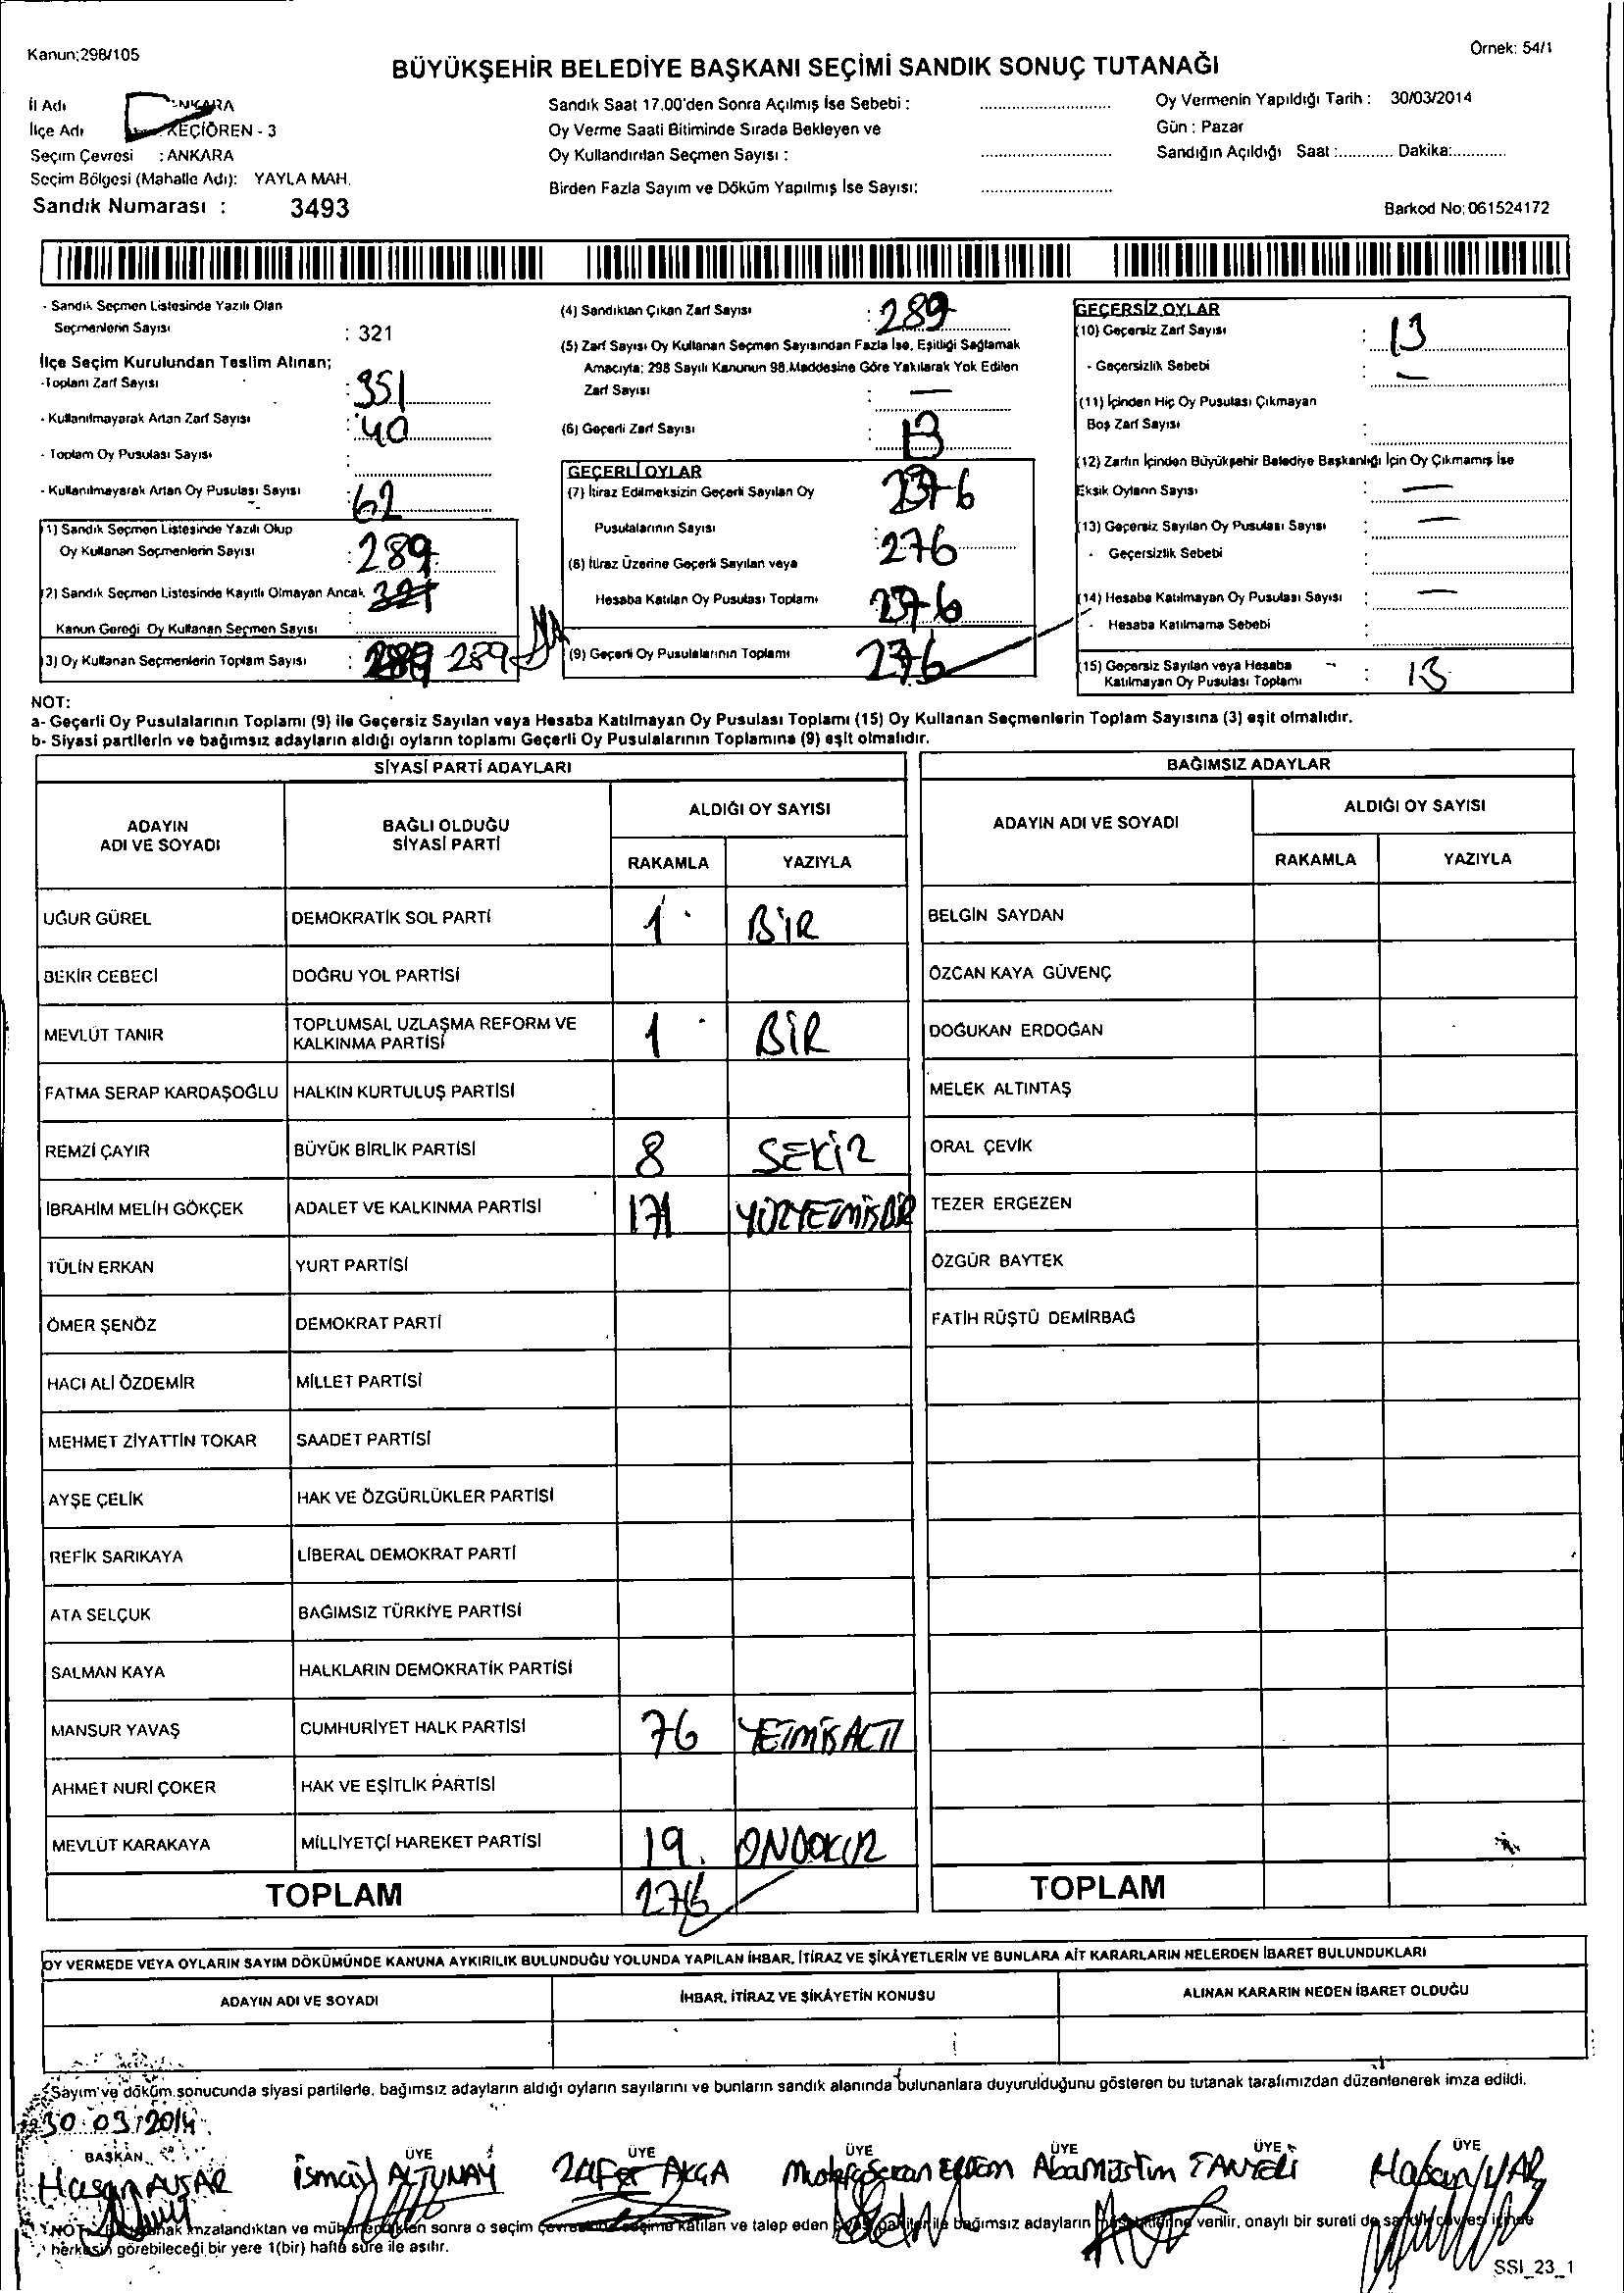 Kanun;298/105
Örnek: 54/1
BÜYÜKŞEHİR BELEDİYE BAŞKANI SEÇİMİ SANDIK SONUÇ TUTANAĞI
İl Adı ANKARA
İlçe Adı KEÇİÖREN - 3
Seçim Çevresi : ANKARA
Seçim Bölgesi (Mahalle Adı): YAYLA MAH.
Sandık Numarası : 3493
Sandık Saat 17.00'den Sonra Açılmış İse Sebebi :
Oy Verme Saati Bitiminde Sırada Bekleyen ve
Oy Kullandırılan Seçmen Sayısı :
Birden Fazla Sayım ve Döküm Yapılmış İse Sayısı:
Oy Vermenin Yapıldığı Tarih : 30/03/2014
Gün : Pazar
Sandığın Açıldığı Saat :............ Dakika:............
Barkod No: 061524172
- Sandık Seçmen Listesinde Yazılı Olan
Seçmenlerin Sayısı : 321
İlçe Seçim Kurulundan Teslim Alınan;
-Toplam Zarf Sayısı : 351
- Kullanılmayarak Artan Zarf Sayısı : 40
- Toplam Oy Pusulası Sayısı :
- Kullanılmayarak Artan Oy Pusulası Sayısı : 62
(1) Sandık Seçmen Listesinde Yazılı Olup
Oy Kullanan Seçmenlerin Sayısı : 289
(2) Sandık Seçmen Listesinde Kayıtlı Olmayan Ancak
Kanun Gereği Oy Kullanan Seçmen Sayısı
(3) Oy Kullanan Seçmenlerin Toplam Sayısı : 289
(4) Sandıktan Çıkan Zarf Sayısı : 289
(5) Zarf Sayısı Oy Kullanan Seçmen Sayısından Fazla İse, Eşitliği Sağlamak
Amacıyla; 298 Sayılı Kanunun 98.Maddesine Göre Yakılarak Yok Edilen
Zarf Sayısı : —
(6) Geçerli Zarf Sayısı : 13
GEÇERLİ OYLAR
(7) İtiraz Edilmeksizin Geçerli Sayılan Oy 276
Pusulalarının Sayısı : 276
(8) İtiraz Üzerine Geçerli Sayılan veya
Hesaba Katılan Oy Pusulası Toplamı 276
(9) Geçerli Oy Pusulalarının Toplamı 276
GEÇERSİZ OYLAR
(10) Geçersiz Zarf Sayısı : 13
- Geçersizlik Sebebi : —
(11) İçinden Hiç Oy Pusulası Çıkmayan
Boş Zarf Sayısı :
(12) Zarfın İçinden Büyükşehir Belediye Başkanlığı İçin Oy Çıkmamış İse
Eksik Oyların Sayısı : —
(13) Geçersiz Sayılan Oy Pusulası Sayısı : —
- Geçersizlik Sebebi :
(14) Hesaba Katılmayan Oy Pusulası Sayısı : —
- Hesaba Katılmama Sebebi :
(15) Geçersiz Sayılan veya Hesaba
Katılmayan Oy Pusulası Toplamı : 13
NOT:
a- Geçerli Oy Pusulalarının Toplamı (9) ile Geçersiz Sayılan veya Hesaba Katılmayan Oy Pusulası Toplamı (15) Oy Kullanan Seçmenlerin Toplam Sayısına (3) eşit olmalıdır.
b- Siyasi partilerin ve bağımsız adayların aldığı oyların toplamı Geçerli Oy Pusulalarının Toplamına (9) eşit olmalıdır.
SİYASİ PARTİ ADAYLARI
ADAYIN ADI VE SOYADI
BAĞLI OLDUĞU SİYASİ PARTİ
ALDIĞI OY SAYISI
RAKAMLA YAZIYLA
UĞUR GÜREL DEMOKRATİK SOL PARTİ 1 BİR
BEKİR CEBECİ DOĞRU YOL PARTİSİ
MEVLÜT TANIR TOPLUMSAL UZLAŞMA REFORM VE KALKINMA PARTİSİ 1 BİR
FATMA SERAP KARDAŞOĞLU HALKIN KURTULUŞ PARTİSİ
REMZİ ÇAYIR BÜYÜK BİRLİK PARTİSİ 8 SEKİZ
İBRAHİM MELİH GÖKÇEK ADALET VE KALKINMA PARTİSİ 171 YÜZYETMİŞBİR
TÜLİN ERKAN YURT PARTİSİ
ÖMER ŞENÖZ DEMOKRAT PARTİ
HACI ALİ ÖZDEMİR MİLLET PARTİSİ
MEHMET ZİYATTİN TOKAR SAADET PARTİSİ
AYŞE ÇELİK HAK VE ÖZGÜRLÜKLER PARTİSİ
REFİK SARIKAYA LİBERAL DEMOKRAT PARTİ
ATA SELÇUK BAĞIMSIZ TÜRKİYE PARTİSİ
SALMAN KAYA HALKLARIN DEMOKRATİK PARTİSİ
MANSUR YAVAŞ CUMHURİYET HALK PARTİSİ 76 YETMİŞALTI
AHMET NURİ ÇOKER HAK VE EŞİTLİK PARTİSİ
MEVLÜT KARAKAYA MİLLİYETÇİ HAREKET PARTİSİ 19 ONDOKUZ
TOPLAM 276
BAĞIMSIZ ADAYLAR
ADAYIN ADI VE SOYADI
ALDIĞI OY SAYISI
RAKAMLA YAZIYLA
BELGİN SAYDAN
ÖZCAN KAYA GÜVENÇ
DOĞUKAN ERDOĞAN
MELEK ALTINTAŞ
ORAL ÇEVİK
TEZER ERGEZEN
ÖZGÜR BAYTEK
FATİH RÜŞTÜ DEMİRBAĞ
TOPLAM
OY VERMEDE VEYA OYLARIN SAYIM DÖKÜMÜNDE KANUNA AYKIRILIK BULUNDUĞU YOLUNDA YAPILAN İHBAR, İTİRAZ VE ŞİKÂYETLERİN VE BUNLARA AİT KARARLARIN NELERDEN İBARET BULUNDUKLARI
ADAYIN ADI VE SOYADI
İHBAR, İTİRAZ VE ŞİKÂYETİN KONUSU
ALINAN KARARIN NEDEN İBARET OLDUĞU
Sayım ve döküm sonucunda siyasi partilerle, bağımsız adayların aldığı oyların sayılarını ve bunların sandık alanında bulunanlara duyurulduğunu gösteren bu tutanak tarafımızdan düzenlenerek imza edildi.
30.03.2014
BAŞKAN ÜYE ÜYE ÜYE ÜYE ÜYE ÜYE
Hasan AVŞAR İsmail ALTUNAY Zafer AKÇA
NOT: tutanak imzalandıktan ve mühürlendikten sonra o seçim çevresinde seçime katılan ve talep eden siyasi partiler ile bağımsız adayların müşahitlerine verilir, onaylı bir sureti de sandık çevresi içinde
herkesin görebileceği bir yere 1(bir) hafta süre ile asılır.
SSI_23_1